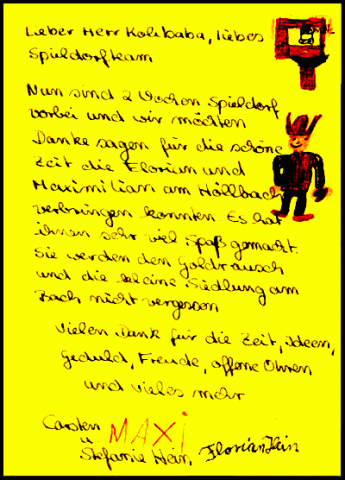 Lieber Herr Kohbaba, liebes
Spieldorfteam
Nun sind 2 Wochen Spieldorf
vorbei und wir möchten
Danke sagen für die schöne
Zeit die Florian und
Maximilian am Höllbach
verbringen konnten. Es hat
ihnen sehr viel Spaß gemacht.
Sie werden den Goldrausch
und die kleine Siedlung am
Bach nicht vergessen
Vielen Dank für die Zeit, Ideen,
Geduld, Freude, offene Ohren
und vieles mehr
Carsten MAXI
u.
Stefanie Hein, Florian Hein